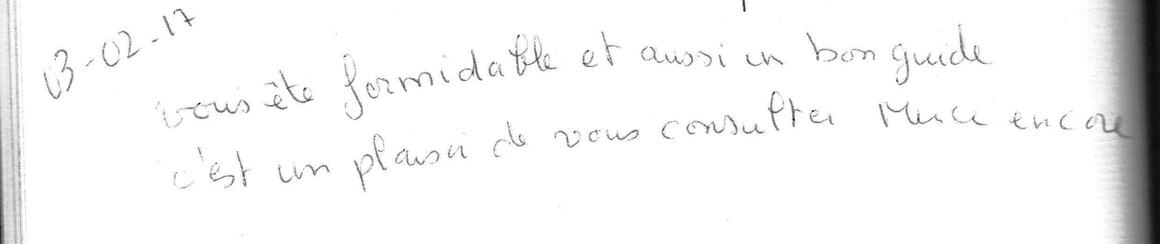 03-02-17
vous ête formidable et aussi un bon guide
c'est un plaisir de vous consulter Merci encore